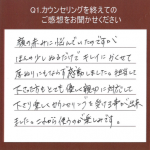 Q1.カウンセリングを終えての
ご感想をお聞かせください
顔の赤みに悩んでいたのですが
ほんの少しぬるだけで キレイに かくせて
厚ぬりにもならず感動しました。担当して
下さった方もとても優しく親切に対応して
下さり楽しくカウンセリングを受ける事が出来
ました。これから使うのが楽しみです。